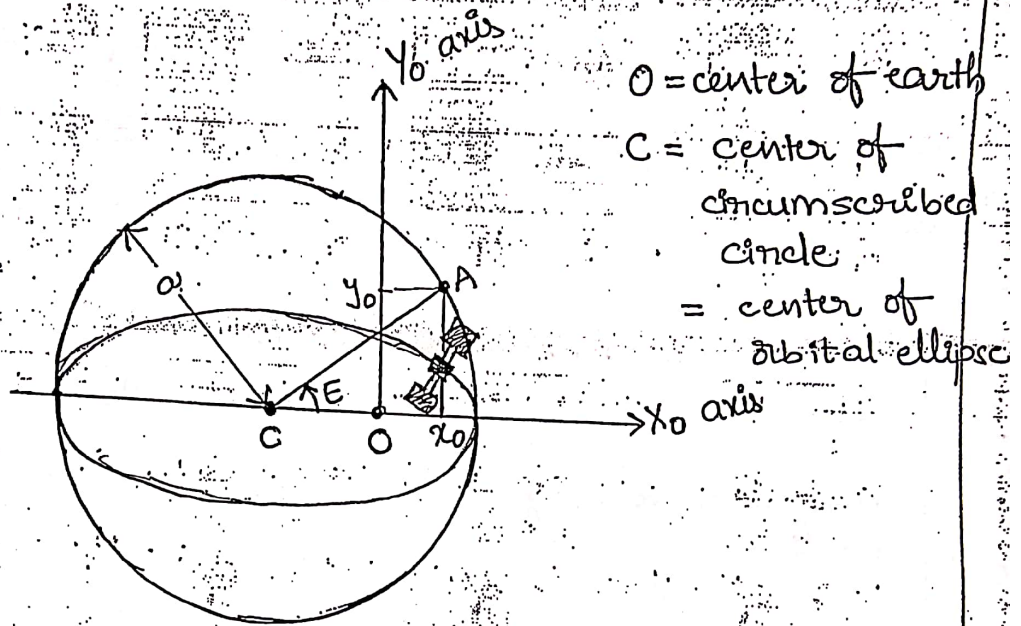 Y₀ axis
O = center of earth
C = center of
circumscribed
circle
= center of
orbital ellipse
a
y₀
A
E
C
O
x₀
X₀ axis